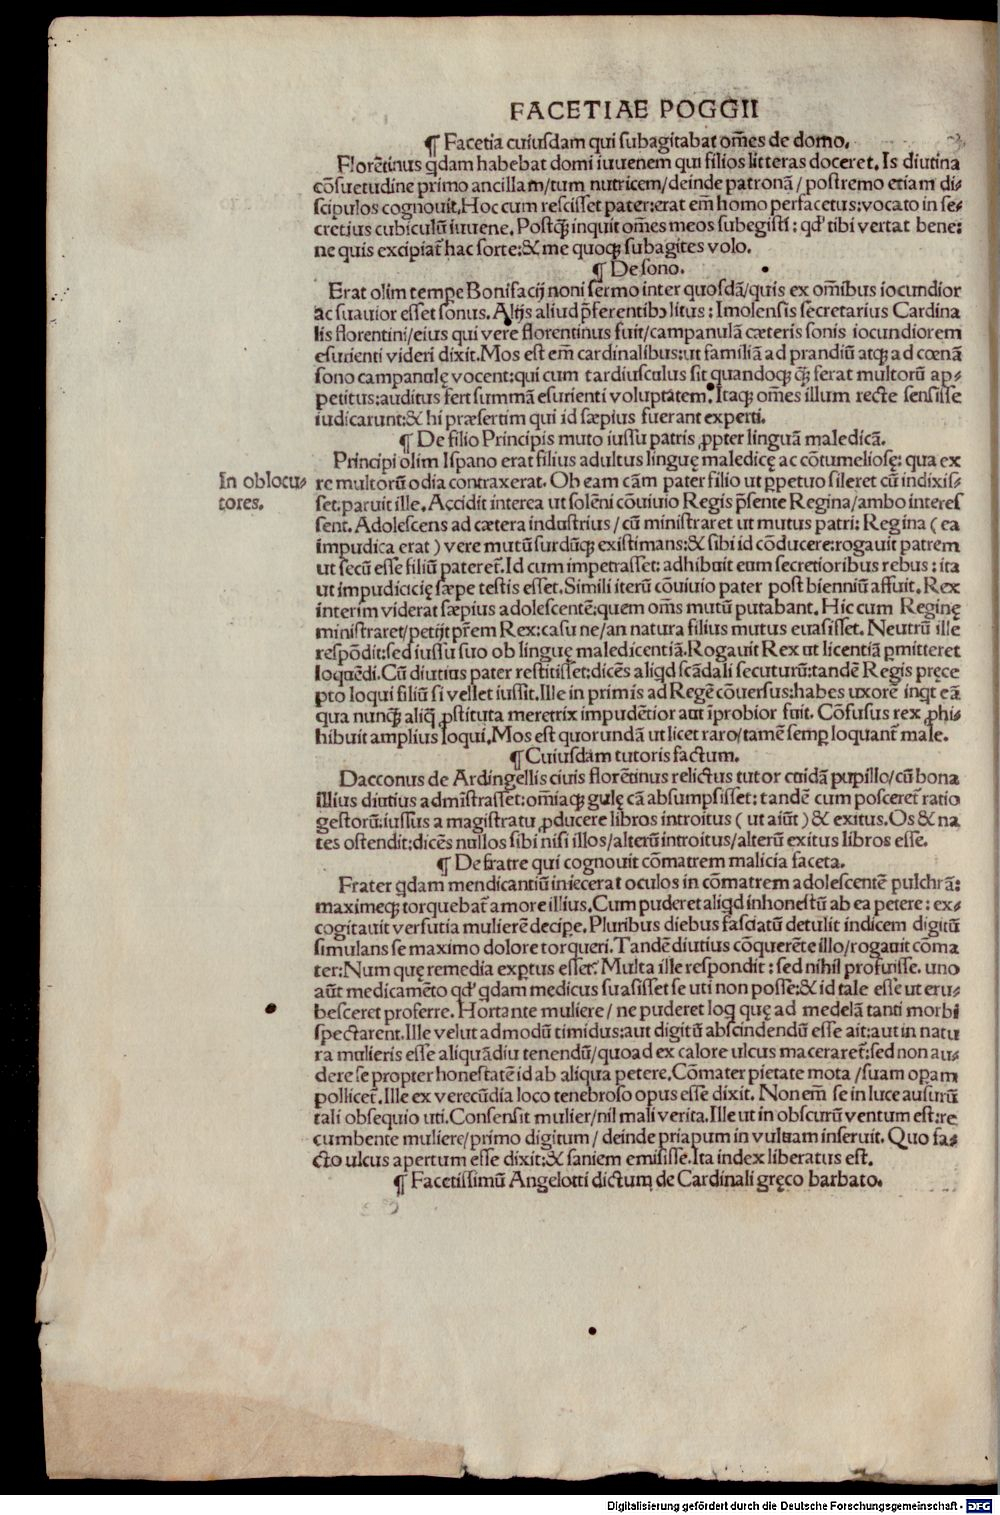 FACETIAE POGGII
¶ Facetia cuiusdam qui subagitabat om̄es de domo.
Florētinus qdam habebat domi iuuenem qui filios litteras doceret. Is diutina
cōsuetudine primo ancillam/tum nutricem/deinde patronā/ postremo etiam di-
scipulos cognouit. Hoc cum rescisset pater: erat em̄ homo perfacetus: vocato in se-
cretius cubiculū iuuene. Postqȝ inquit om̄es meos subegisti: qđ tibi vertat bene:
ne quis excipiat̄ hac sorte: & me quoqȝ subagites volo.
¶ De sono.
Erat olim tempe Bonifacij noni sermo inter quosdā/quis ex om̄ibus iocundior
ac suauior esset sonus. Alijs aliud p̄ferentibꝰ litus: Imolensis secretarius Cardina
lis florentini/eius qui vere florentinus fuit/campanulā cæteris sonis iocundiorem
esurienti videri dixit. Mos est em̄ cardinalibus: ut familiā ad prandiū atqȝ ad cœnā
sono campanulę vocent: qui cum tardiusculus sit quandoqȝ qȝ̄ ferat multorū ap-
petitus: auditus fert summā esurienti voluptatem. Itaqȝ om̄es illum recte sensisse
iudicarunt: & hi præsertim qui id sæpius fuerant experti.
¶ De filio Principis muto iussu patris ꝓpter linguā maledicā.
Principi olim Ispano erat filius adultus linguę maledicę ac cōtumeliosę: qua ex
In oblocu-
tores.
re multorū odia contraxerat. Ob eam cām pater filio ut ꝑpetuo sileret cū indixis-
set: paruit ille. Accidit interea ut solēni cōuiuio Regis p̄sente Regina/ambo interes
sent. Adolescens ad cætera industrius/ cū ministraret ut mutus patri: Regina ( ea
impudica erat ) vere mutū surdūqȝ existimans: & sibi id cōducere: rogauit patrem
ut secū esse filiū pateret̄. Id cum impetrasset: adhibuit eum secretioribus rebus: ita
ut impudicicię sæpe testis esset. Simili iterū cōuiuio pater post bienniū affuit. Rex
interim viderat sæpius adolescentē: quem om̄s mutū putabant. Hic cum Reginę
ministraret/petijt pr̄em Rex: casu ne/an natura filius mutus euasisset. Neutrū ille
respōdit: sed iussu suo ob linguę maledicentiā. Rogauit Rex ut licentiā ꝑmitteret
loquēdi. Cū diutius pater restitisset: dicēs aliqd scādali secuturū: tandē Regis pręce
pto loqui filiū si vellet iussit. Ille in primis ad Regē cōuersus: habes uxorē inqt eā
qua nunqȝ̄ aliq̄ ꝓstituta meretrix impudētior aut īprobior fuit. Cōfusus rex ꝓhi-
hibuit amplius loqui. Mos est quorundā ut licet raro/tamē semꝑ loquant̄ male.
¶ Cuiusdam tutoris factum.
Dacconus de Ardingellis ciuis florētinus relictus tutor cuidā pupillo/cū bona
illius diutius admīstrasset: om̄iaqȝ gulę cā absumpsisset: tandē cum posceret̄ ratio
gestorū: iussus a magistratu ꝓducere libros introitus ( ut aiūt ) & exitus. Os & na
tes ostendit: dicēs nullos sibi nisi illos/alterū introitus/alterū exitus libros esse.
¶ De fratre qui cognouit cōmatrem malicia faceta.
Frater qdam mendicantiū iniecerat oculos in cōmatrem adolescentē pulchrā:
maximeqȝ torquebat̄ amore illius. Cum puderet aliqd inhonestū ab ea petere: ex-
cogitauit versutia mulierē decipe. Pluribus diebus fasciatū detulit indicem digitū
simulans se maximo dolore torqueri. Tandē diutius cōquerēte illo/rogauit cōma
ter: Num quę remedia exꝑtus esset. Multa ille respondit: sed nihil profuisse. uno
aūt medicamēto qđ qdam medicus suasisset se uti non posse: & id tale esse ut eru-
besceret proferre. Hortante muliere/ ne puderet loq quę ad medelā tanti morbi
spectarent. Ille velut admodū timidus: aut digitū abscindendū esse ait: aut in natu
ra mulieris esse aliquādiu tenendū/quoad ex calore ulcus maceraret̄: sed non au-
dere se propter honestatē id ab aliqua petere. Cōmater pietate mota /suam oꝑam
pollicet̄. Ille ex verecūdia loco tenebroso opus esse dixit. Non em̄ se in luce ausurū
tali obsequio uti. Consensit mulier/nil mali verita. Ille ut in obscurū ventum est: re
cumbente muliere/primo digitum/ deinde priapum in vuluam inseruit. Quo fa-
cto ulcus apertum esse dixit: & saniem emisisse. Ita index liberatus est.
¶ Facetissimū Angelotti dictum de Cardinali gręco barbato.
Digitalisierung gefördert durch die Deutsche Forschungsgemeinschaft - DFG